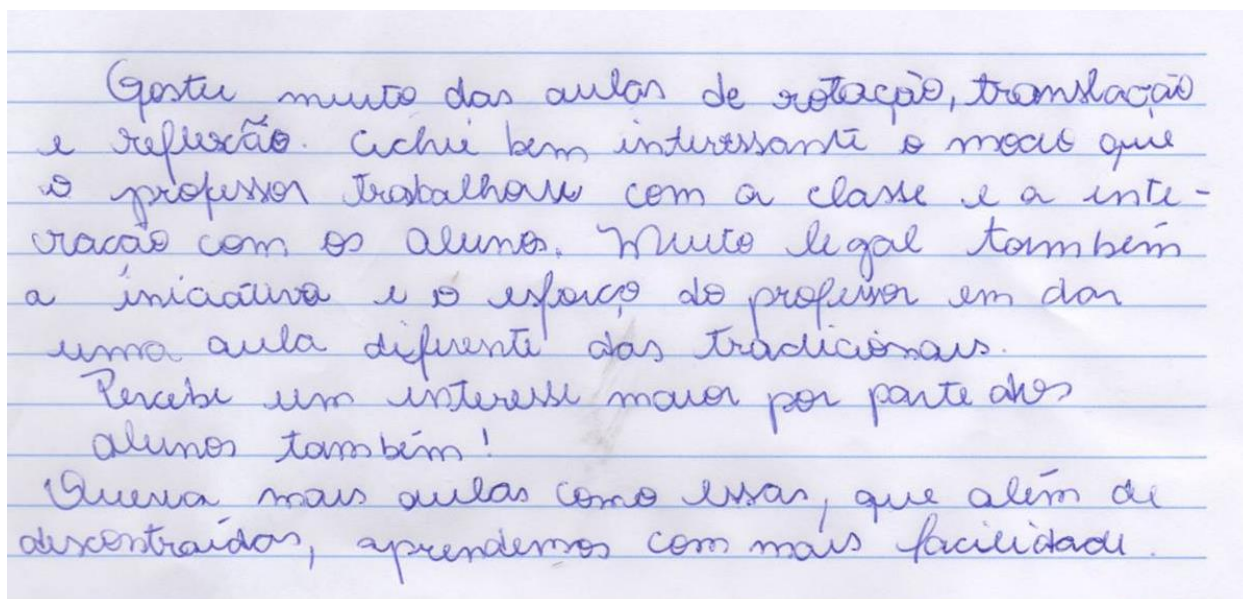 Gostei muito das aulas de rotação, translação
e reflexão. Achei bem interessante o modo que
o professor trabalhou com a classe e a inte-
ração com os alunos. Muito legal também
a iniciativa e o esforço do professor em dar
uma aula diferente das tradicionais.
Percebi um interesse maior por parte dos
alunos também!
Queria mais aulas como essas, que além de
descontraídas, aprendemos com mais facilidade.